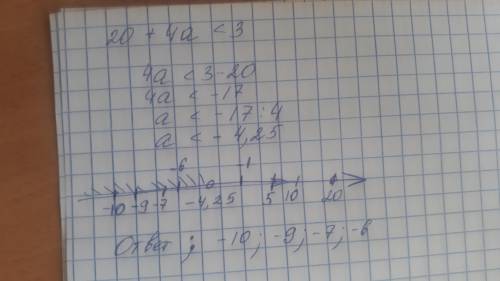 20 + 4a < 3
4a < 3-20
4a < -17
a < -17:4
a < -4,25
-6 -1
-10 -9 -7 -4,25 5 10 20
Ответ; -10; -9; -7; -6